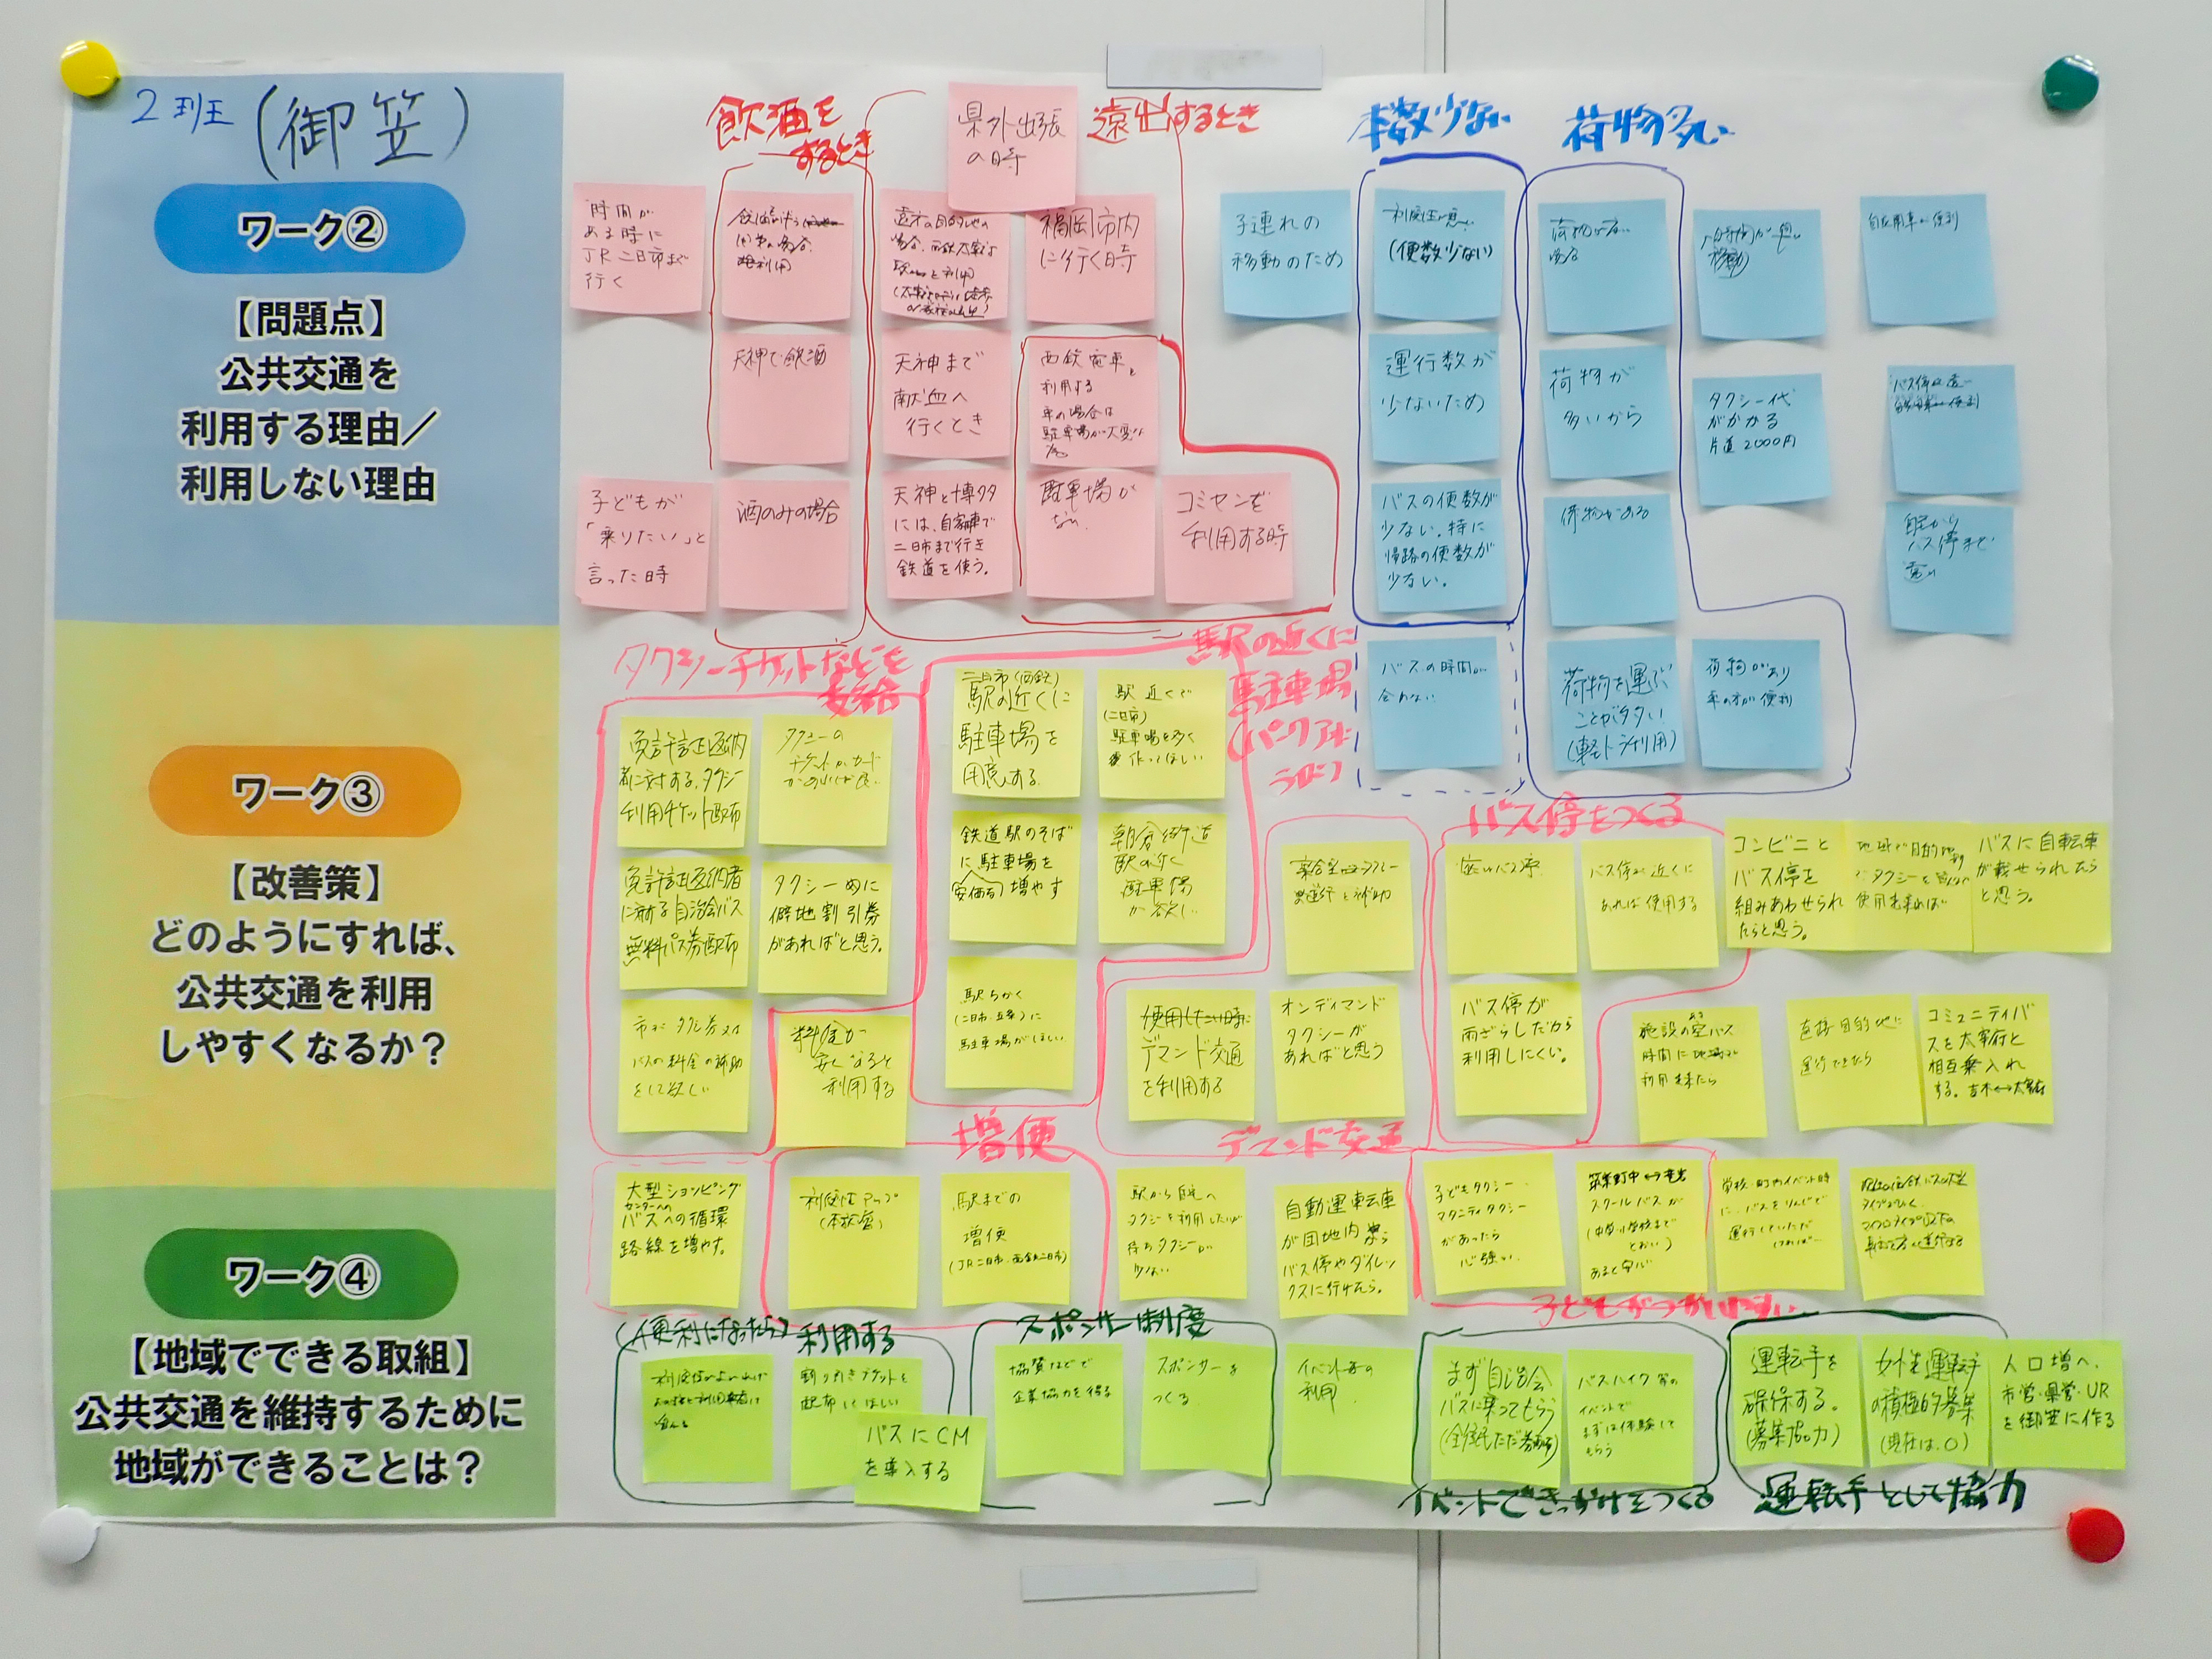 2班
(御笠)
ワーク②
【問題点】
公共交通を
利用する理由／
利用しない理由
ワーク③
【改善策】
どのようにすれば、
公共交通を利用
しやすくなるか？
ワーク④
【地域でできる取組】
公共交通を維持するために
地域ができることは？
飲酒を
するとき
遠出するとき
本数少ない
荷物多い
県外出張
の時
時間が
ある時に
JR二日市まで
行く
福岡市内
に行く時
子連れの
移動のため
(便数少ない)
自家用車が便利
天神で飲酒
天神まで
献血へ
行くとき
西鉄電車を
利用する
車の場合は
駐車場が大変な
運行数が
少ないため
荷物が
多いから
タクシー代
がかかる
片道2000円
バス停が遠い
子どもが
「乗りたい」と
言った時
酒のみの場合
天神と博多
には、自家車で
二日市まで行き
鉄道を使う。
駐車場が
ない
コミセンを
利用する時
バスの便数が
少ない。特に
帰路の便数が
少ない。
荷物がある
自宅から
バス停まで
遠い
バスの時間が
合わない
荷物を運ぶ
ことが多い
(軽トラ利用)
荷物があり
車の方が便利
タクシーチケットなどを
支給
駅の近くに
駐車場
免許証返納
者に対する、タクシー
利用チケット配布
二日市(西鉄)
駅の近くに
駐車場を
用意する
駅近くで
(二日市)
駐車場を多く
作ってほしい
免許証返納者
に対する自治会バス
無料パス券配布
タクシー的に
僻地割引券
があればと思う。
鉄道駅のそば
に駐車場を
安価で増やす
駅の近く
駐車場
が欲しい
市がタクシー券又は
バスの料金の補助
をして欲しい
料金が
安くなると
利用する
駅ちかく
(二日市・五条)に
駐車場がほしい
バス停をつくる
バス停が近くに
あれば使用する
コンビニと
バス停を
組みあわせられ
たらと思う。
バスに自転車
が載せられたら
と思う。
使用したい時に
デマンド交通
を利用する
オンディマンド
タクシーが
あればと思う
バス停が
雨ざらしだから
利用しにくい。
施設の空バス
時間に地域で
利用出来たら
直接目的地に
運行できたら
コミュニティバ
スを太宰府と
相互乗入れ
する。吉木↔太宰府
増便
デマンド交通
大型ショッピング
センターへの
バスへの循環
路線を増やす。
利便性アップ
駅までの
増便
(JR二日市・西鉄二日市)
駅から自宅へ
タクシーを利用したいが
待ちタクシーが
少ない
自動運転車
が団地内から
バス停やダイレッ
クスに行けたら。
子どもタクシー
マタニティタクシー
があったら
心強い
スクールバスが
(中学・小学校まで
とおい)
あると安心
学校・町内イベント時
に、バスをりんじで
運行していただ
ければ―
子どもがつかいやすい
(便利になったら)利用する
スポンサー制度
割り引きチケットを
配布してほしい
バスにCM
を導入する
協賛などで
企業協力を得る
スポンサーを
つくる
イベント等の
利用
まず自治会
バスに乗ってもらう
バスハイク等の
イベントで
まずは体験して
もらう
運転手を
確保する。
(募集協力)
女性運転手
の積極的募集
(現在は、0)
人口増へ、
市営・県営・UR
を御笠に作る
イベントできっかけをつくる
運転手として協力